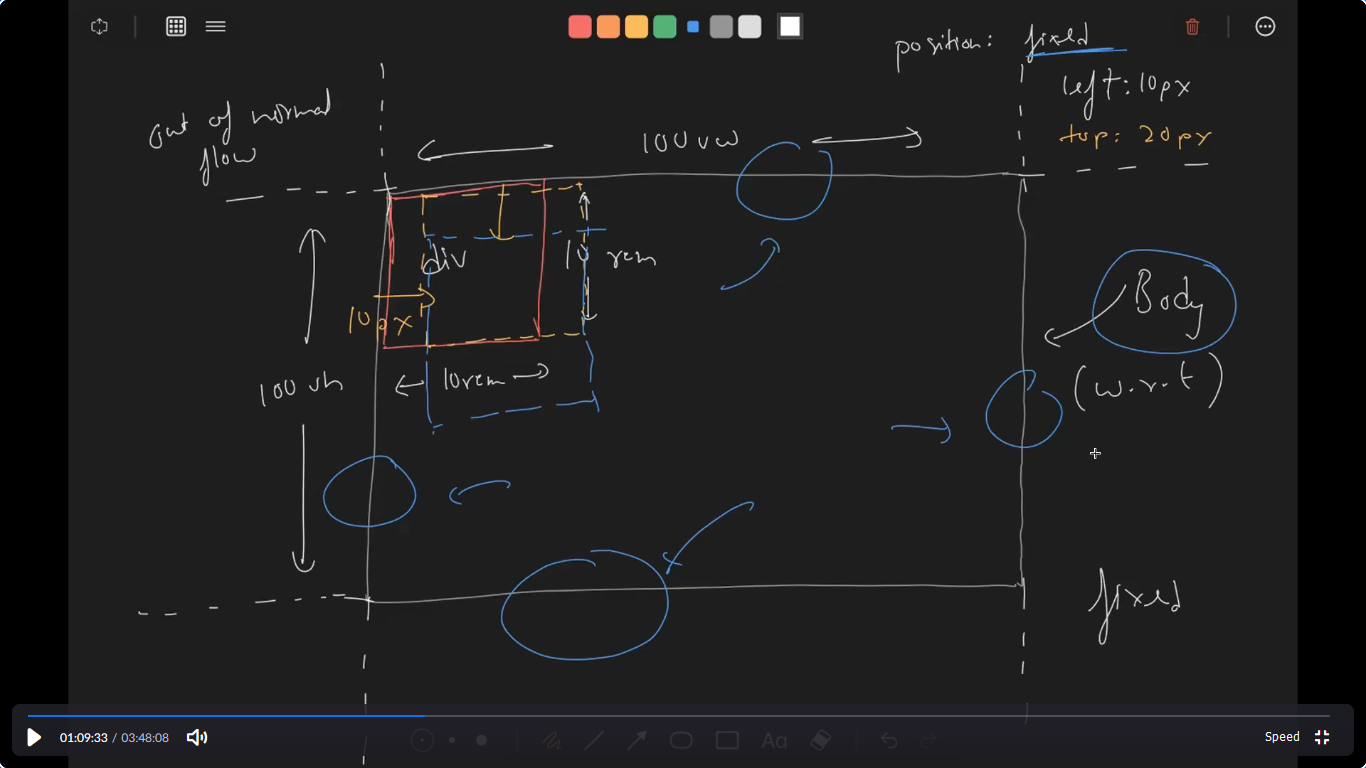 position: fixed
left: 10px
top: 20px
out of normal
flow
100 vw
div
10 rem
10px
10rem
100 vh
Body
(w.r.t)
fixed
01:09:33 / 03:48:08
Speed
Aa